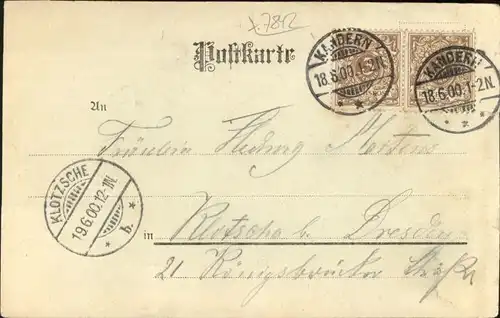 x.7812
Postkarte
KANDERN
18.6.00.1-2N.
KANDERN
18.6.00.1-2N.
An
Fräulein Hedwig Martens
KLOTZSCHE
19.6.00.12-1N.
b.
in Klotzsche b. Dresden
21 Königsbrücker Straße